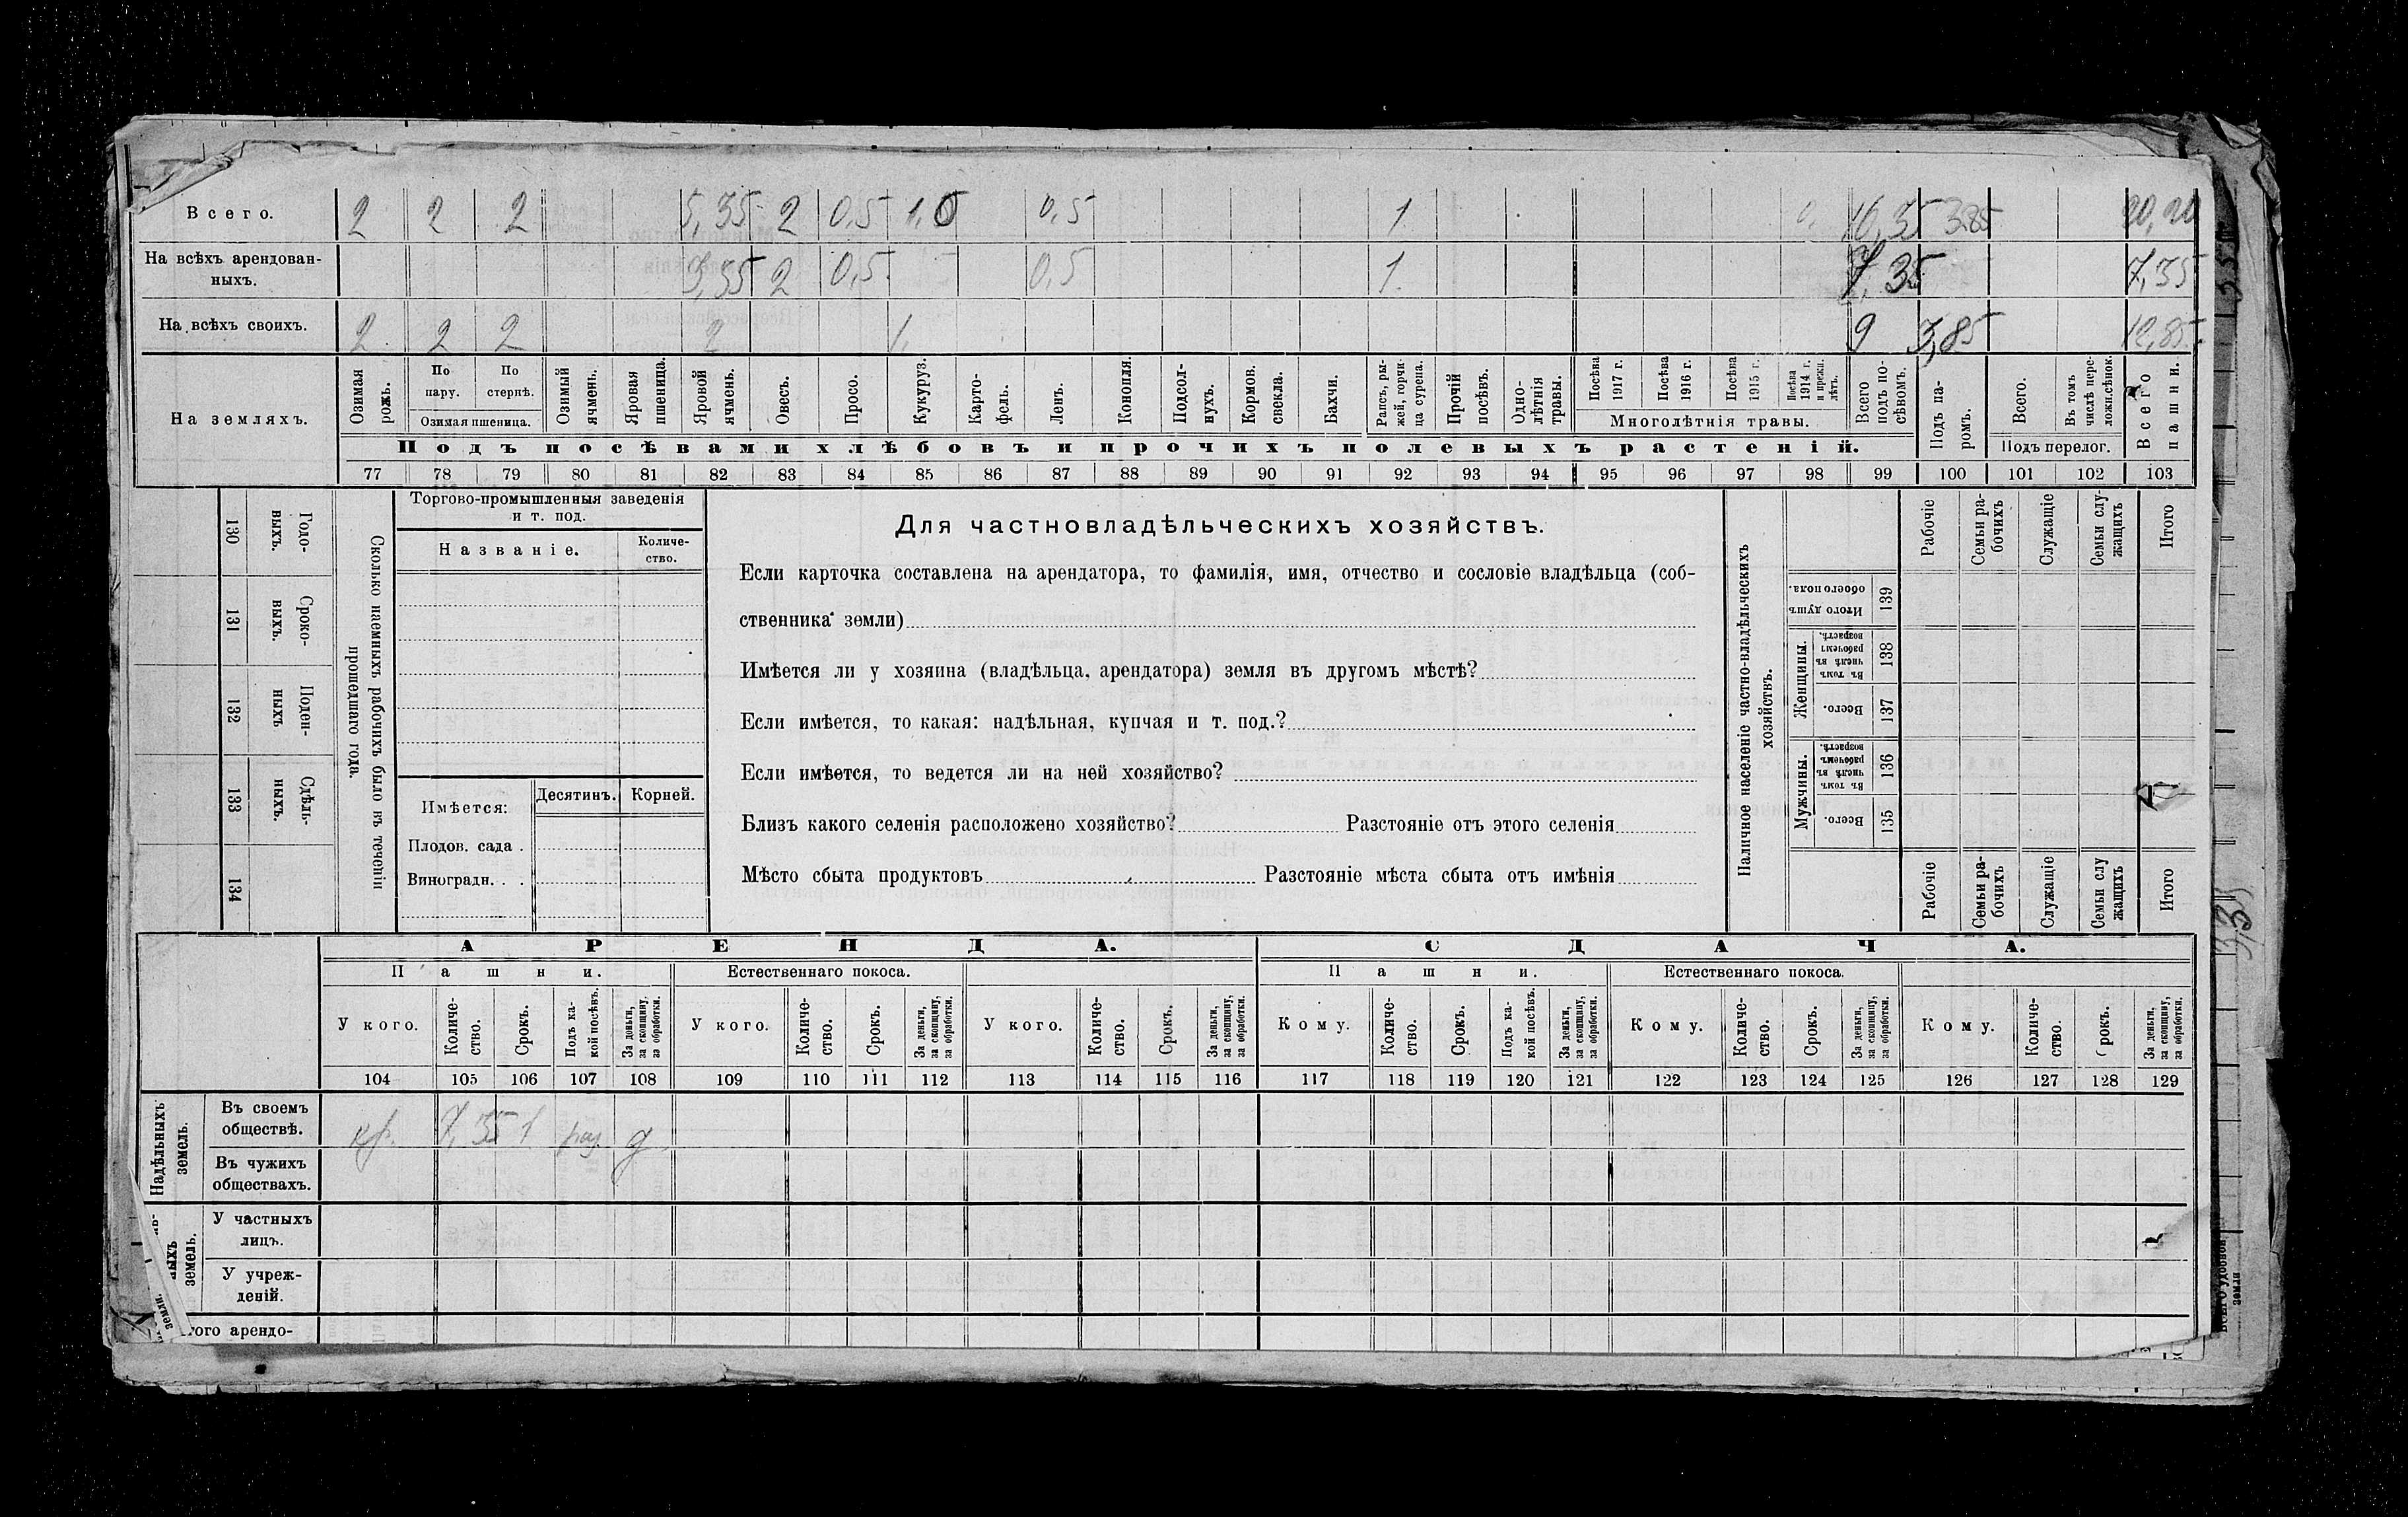 Всего. 2 2 2 5,35 2 0,5 1,0 0,5 1 16,35 3,85 20,20
На всѣхъ арендованныхъ. 3,35 2 0,5 0,5 1. 7,35 7,35
На всѣхъ своихъ. 2 2 2 2 1, 9 3,85 12,85
На земляхъ.
Озимая рожь.
По пару.
По стернѣ.
Озимая пшеница.
Озимый ячмень.
Яровая пшеница.
Яровой ячмень.
Овесъ.
Просо.
Кукуруз.
Карто-фель.
Ленъ.
Конопля.
Подсол-нухъ.
Кормов. свекла.
Бахчи.
Рапсъ, ры-жей, горчи-ца сурепа.
Прочій посѣвъ.
Одно-лѣтнія травы.
Посѣва 1917 г.
Посѣва 1916 г.
Посѣва 1915 г.
Посѣва 1914 г. и прежн. лѣтъ.
Многолѣтнія травы.
Всего подъ по-сѣвомъ.
Подъ па-ромъ.
Всего.
Въ томъ числѣ пере-ложн.сѣнок.
Подъ перелог.
Всего пашни.
Подъ посѣвами хлѣбовъ и прочихъ полевыхъ растеній.
77 78 79 80 81 82 83 84 85 86 87 88 89 90 91 92 93 94 95 96 97 98 99 100 101 102 103
130 Годо-выхъ.
131 Сроко-выхъ.
132 Поден-ныхъ
133 Сдѣль-ныхъ.
134
Сколько наемныхъ рабочихъ было въ теченіи
прошедшаго года.
Торгово-промышленныя заведенія
и т. под.
Названіе.
Количе-ство.
Имѣется:
Десятинъ. Корней.
Плодов. сада .
Виноградн. . .
Для частновладѣльческихъ хозяйствъ.
Если карточка составлена на арендатора, то фамилія, имя, отчество и сословіе владѣльца (соб-
ственника земли)
Имѣется ли у хозяина (владѣльца, арендатора) земля въ другомъ мѣстѣ?
Если имѣется, то какая: надѣльная, купчая и т. под.?
Если имѣется, то ведется ли на ней хозяйство?
Близъ какого селенія расположено хозяйство? Разстояніе отъ этого селенія
Мѣсто сбыта продуктовъ Разстояніе мѣста сбыта отъ имѣнія
Наличное населеніе частно-владѣльческихъ
хозяйствъ.
Рабочіе
Семьи ра-бочихъ
Служащіе
Семьи слу-жащихъ
Итого
Итого душъ обоего пола. 139
Женщины.
Въ томъ числѣ въ рабочемъ возрастѣ. 138
Всего. 137
Мужчины.
Въ томъ числѣ въ рабочемъ возрастѣ. 136
Всего. 135
Рабочіе
Семьи ра-бочихъ
Служащіе
Семьи слу жащихъ
Итого
АРЕНДА. СДАЧА.
Пашни. Естественнаго покоса. Пашни. Естественнаго покоса.
У кого.
Количе-ство.
Срокъ.
Подъ ка-кой посѣвъ.
За деньги, за скопщину, за обработки.
У кого.
Количе-ство.
Срокъ.
За деньги, за скопщину, за обработки.
У кого.
Количе-ство.
Срокъ.
За деньги, за скопщину, за обработки.
Кому.
Количе-ство.
Срокъ.
Подъ ка-кой посѣвъ.
За деньги, за скопщину, за обработки.
Кому.
Количе-ство.
Срокъ.
За деньги, за скопщину, за обработки.
Кому.
Количе-ство.
Срокъ.
За деньги, за скопщину, за обработки.
104 105 106 107 108 109 110 111 112 113 114 115 116 117 118 119 120 121 122 123 124 125 126 127 128 129
Надѣльныхъ земель.
Въ своемъ обществѣ. кр. 7,35 1 раз д
Въ чужихъ обществахъ.
земель.
У частныхъ лицъ.
У учреж-деній.
земли.
ого арендо-